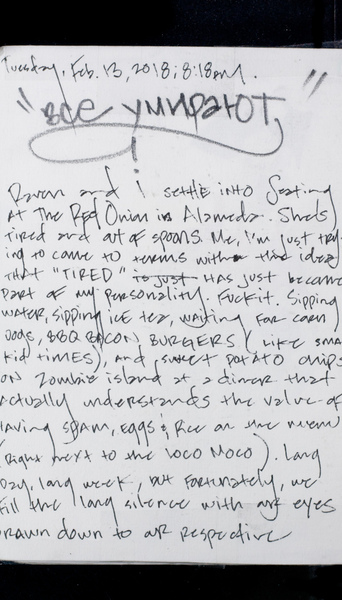 Tuesday, Feb. 13, 2018; 8:18pm.
"все умирают,"
Raven and i settle into seating
at The Red Onion in Alameda. She's
tired and out of spoons. Me, I'm just try-
ing to come to terms with the idea
that "TIRED" is just has just become
part of my personality. Fuck it. Sipping
water, sipping ice tea, waiting for corn
dogs, BBQ BACON BURGERS (like sma
kid times), and sweet potato chips
on Zombie island at a diner that
actually understands the value of
having spam, eggs & rice on the menu
(right next to the loco moco). Long
day, long week, but fortunately, we
fill the long silence with our eyes
drawn down to our respective